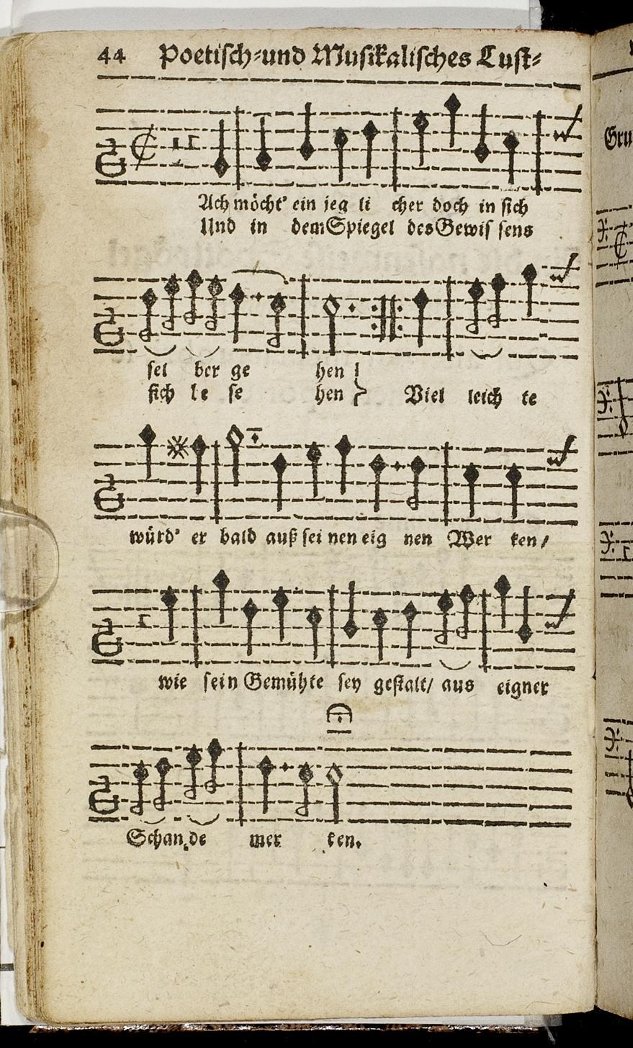 44 Poetisch-und Musikalisches Lust-
Ach möcht' ein jeg li cher doch in sich
Und in dem Spiegel des Gewis sens
sel ber ge hen!
sich le se hen} Viel leich te
würd' er bald auß sei nen eig nen Wer ken/
wie sein Gemühte sey gestalt/ aus eigner
Schan de mer ken.
Gru